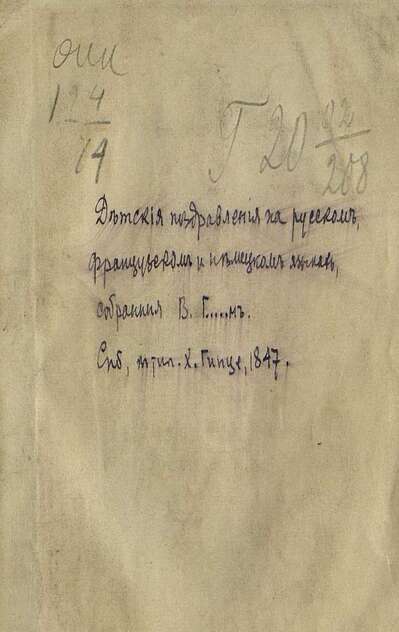 ОИИ
124
74
Г 20 22
208
Дѣтскія поздравленія на русскомъ,
французскомъ и нѣмецкомъ языкахъ,
собранныя В. Г....нъ.
Спб, тип. Х. Гинце, 1847.